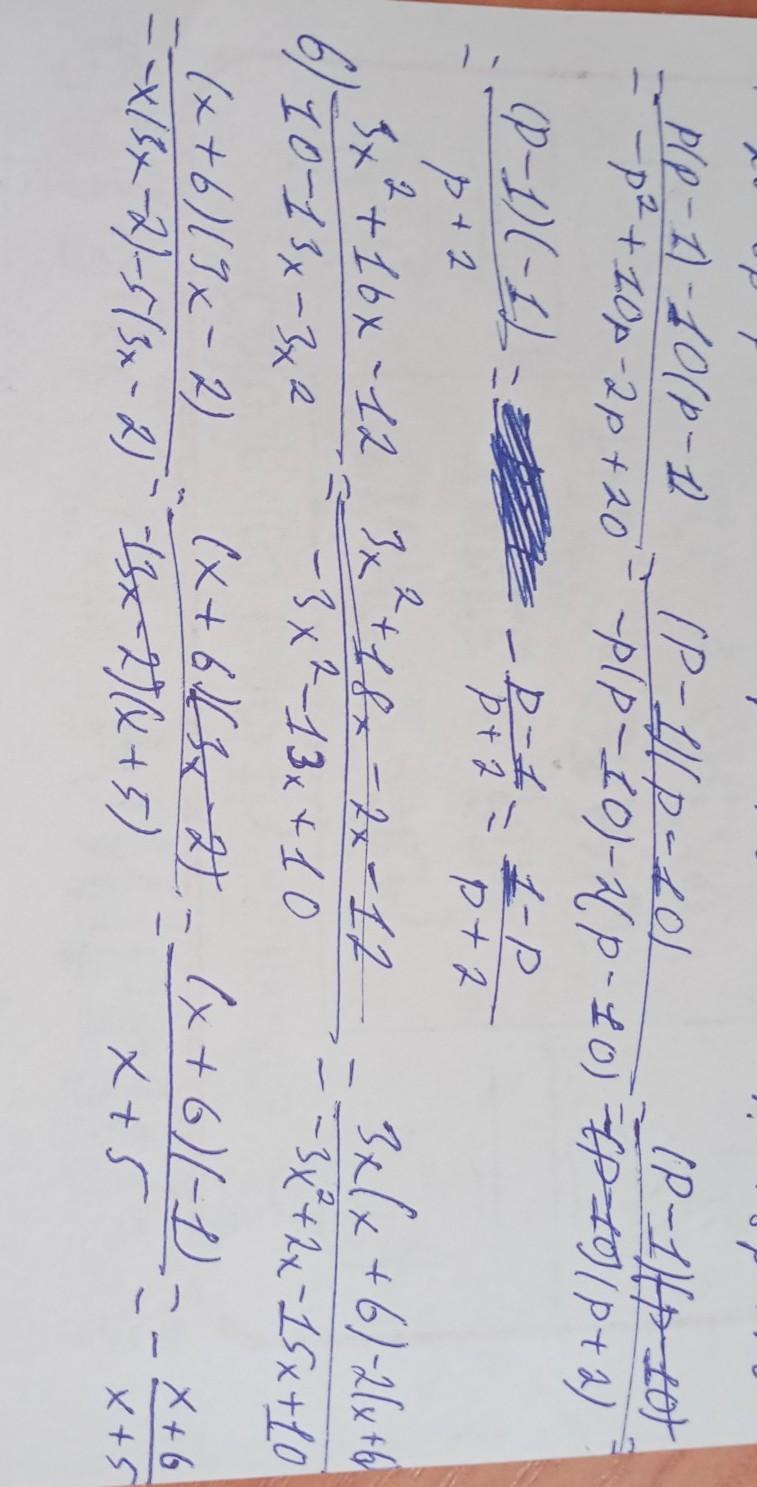 = (p(p-1)-10(p-1))/(-p²+10p-2p+20) = ((p-1)(p-10))/(-p(p-10)-2(p-10)) = ((p-1)(p-10))/(-(p-10)(p+2)) =
= ((p-1)(-1))/(p+2) = -(p-1)/(p+2) = (1-p)/(p+2)
б) (3x²+16x-12)/(10-13x-3x²) = (3x²+18x-2x-12)/(-3x²-13x+10) = (3x(x+6)-2(x+6)/(-3x²+2x-15x+10)
= ((x+6)(3x-2))/(-x(3x-2)-5(3x-2)) = ((x+6)(3x-2))/(-(3x-2)(x+5)) = ((x+6)(-1))/(x+5) = -(x+6)/(x+5)